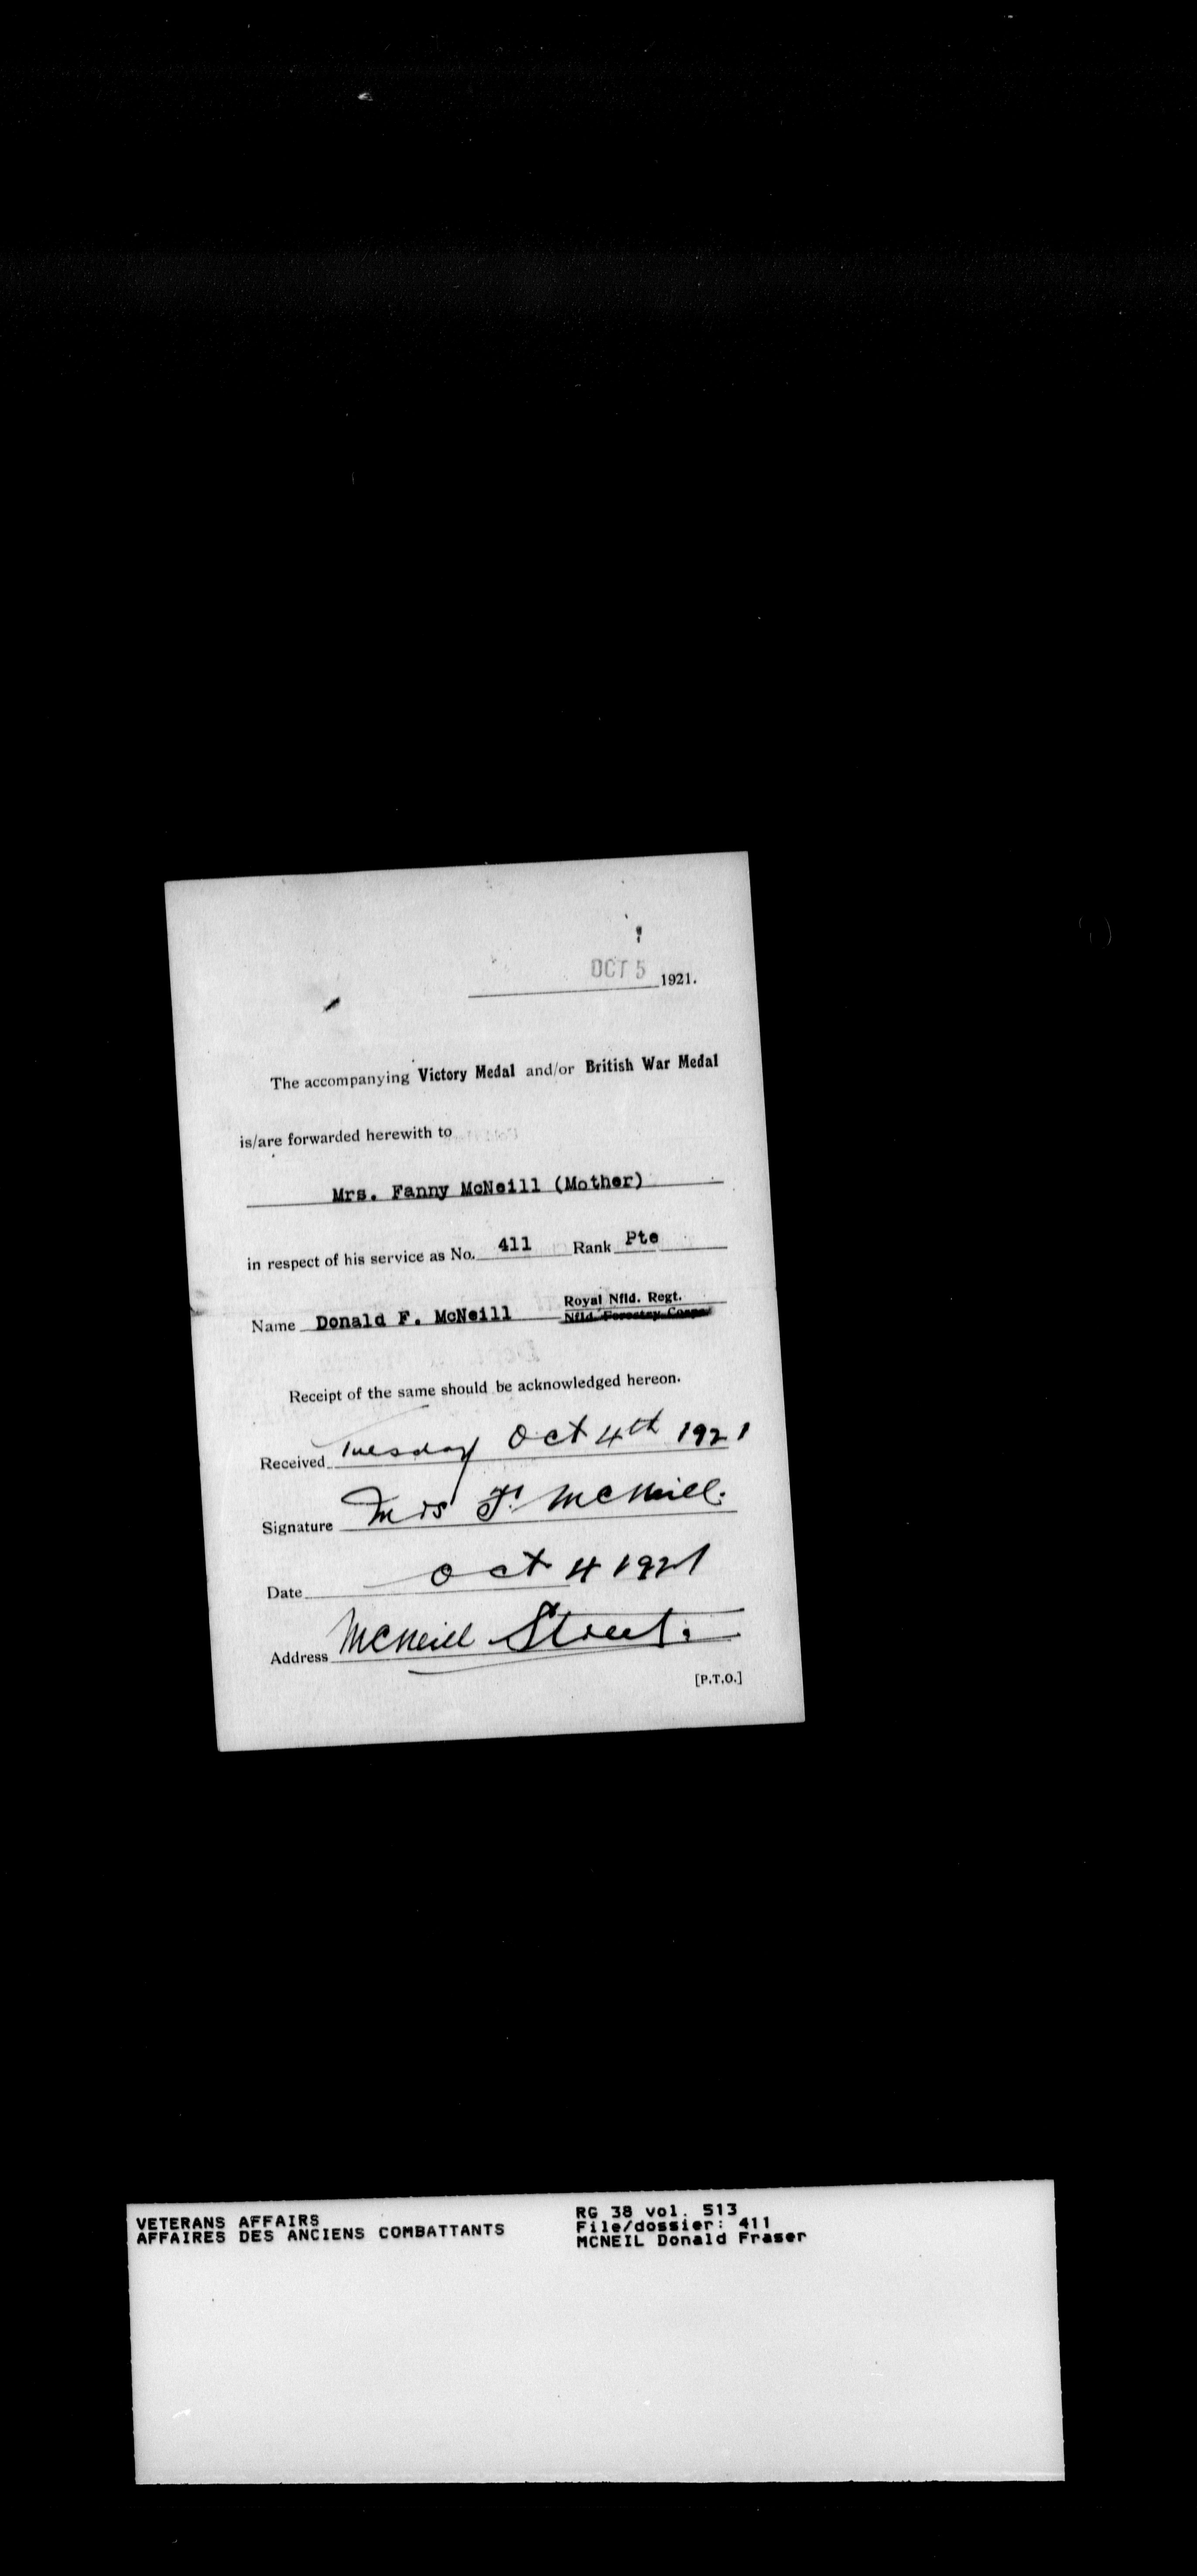 OCT 5 1921.
The accompanying Victory Medal and/or British War Medal
is/are forwarded herewith to
Mrs. Fanny McNeill (Mother)
in respect of his service as No. 411 Rank Pte
Royal Nfld. Regt.
Name Donald F. McNeill Nfld Forestry Corps
Receipt of the same should be acknowledged hereon.
Received Tuesday Oct 4th 1921
Signature Mrs F. McNeill.
Date Oct 4 1921
Address McNeill Street.
[P.T.O.]
VETERANS AFFAIRS
AFFAIRES DES ANCIENS COMBATTANTS
RG 38 vol. 513
File/dossier: 411
MCNEIL Donald Fraser